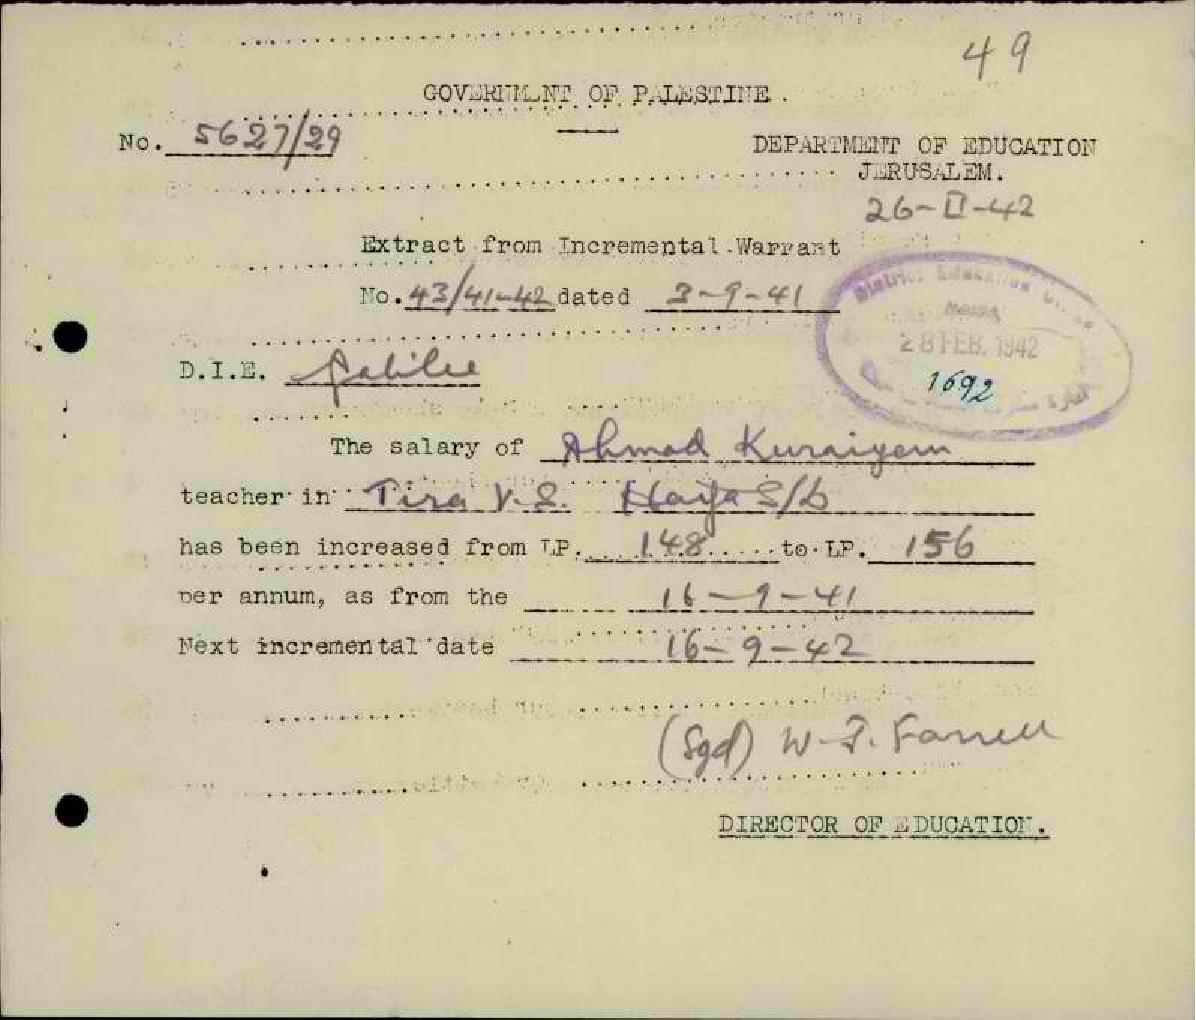 49
GOVERNMENT OF PALESTINE.
No. 5627/29
DEPARTMENT OF EDUCATION
JERUSALEM.
26-II-42
Extract from Incremental Warrant
No. 43/41-42 dated 3-9-41
District Education
28 FEB. 1942
1692
D.I.E. Galilee
The salary of Ahmad Kuraiyem
teacher in Tira V.S. Haifa S/D
has been increased from LP. 148 to LP. 156
per annum, as from the 16-9-41
Next incremental date 16-9-42
(Sgd) W. J. Farrell
DIRECTOR OF EDUCATION.